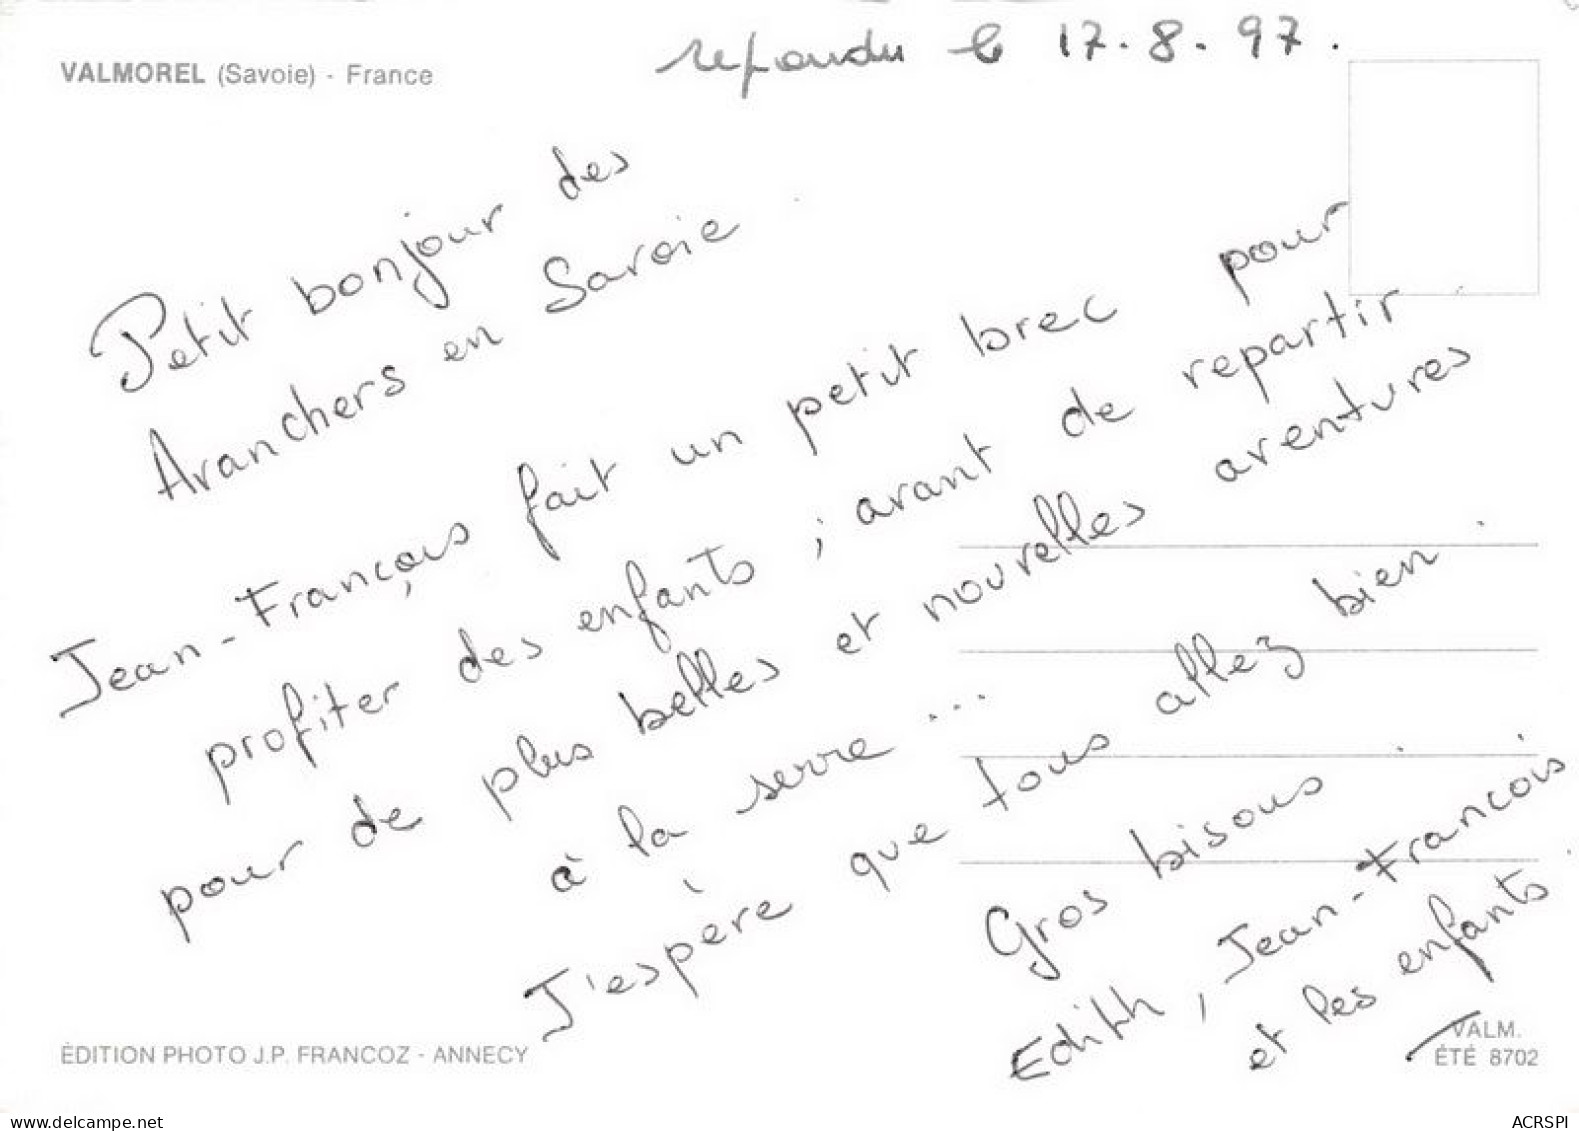 repondu le 17.8.97.
VALMOREL (Savoie) - France
Petit bonjour des
Avanchers en Savoie.
Jean-François fait un petit brec pour
profiter des enfants ; avant de repartir
pour de plus belles et nouvelles aventures
à la serre ...
J'espère que tous allez bien.
Gros bisous.
Edith, Jean-François
et les enfants.
ÉDITION PHOTO J.P. FRANCOZ - ANNECY
VALM.
ÉTÉ 8702
ACRSPI